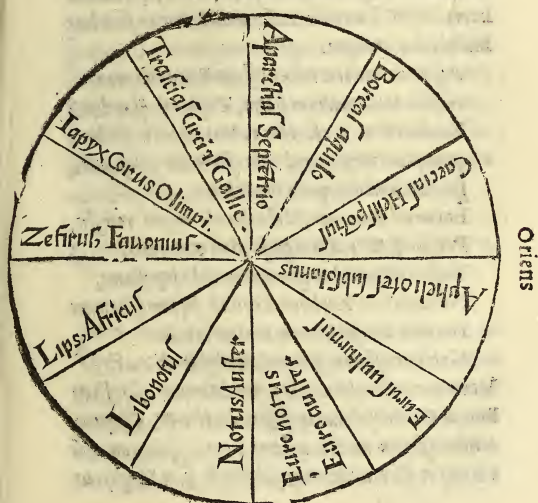 Aparchas Septẽtrio
Boreas aquilo
Caecias Helispõtus
Apheliotes subsolanus
Oriens
Eurus uulturnus
Euronotus
Euroauster
Notus Auster
Libonotus
Lips, Africus
Zefirus, Fauonius
Iapyx Corus Olimpi.
Trascias Circius Gallic.